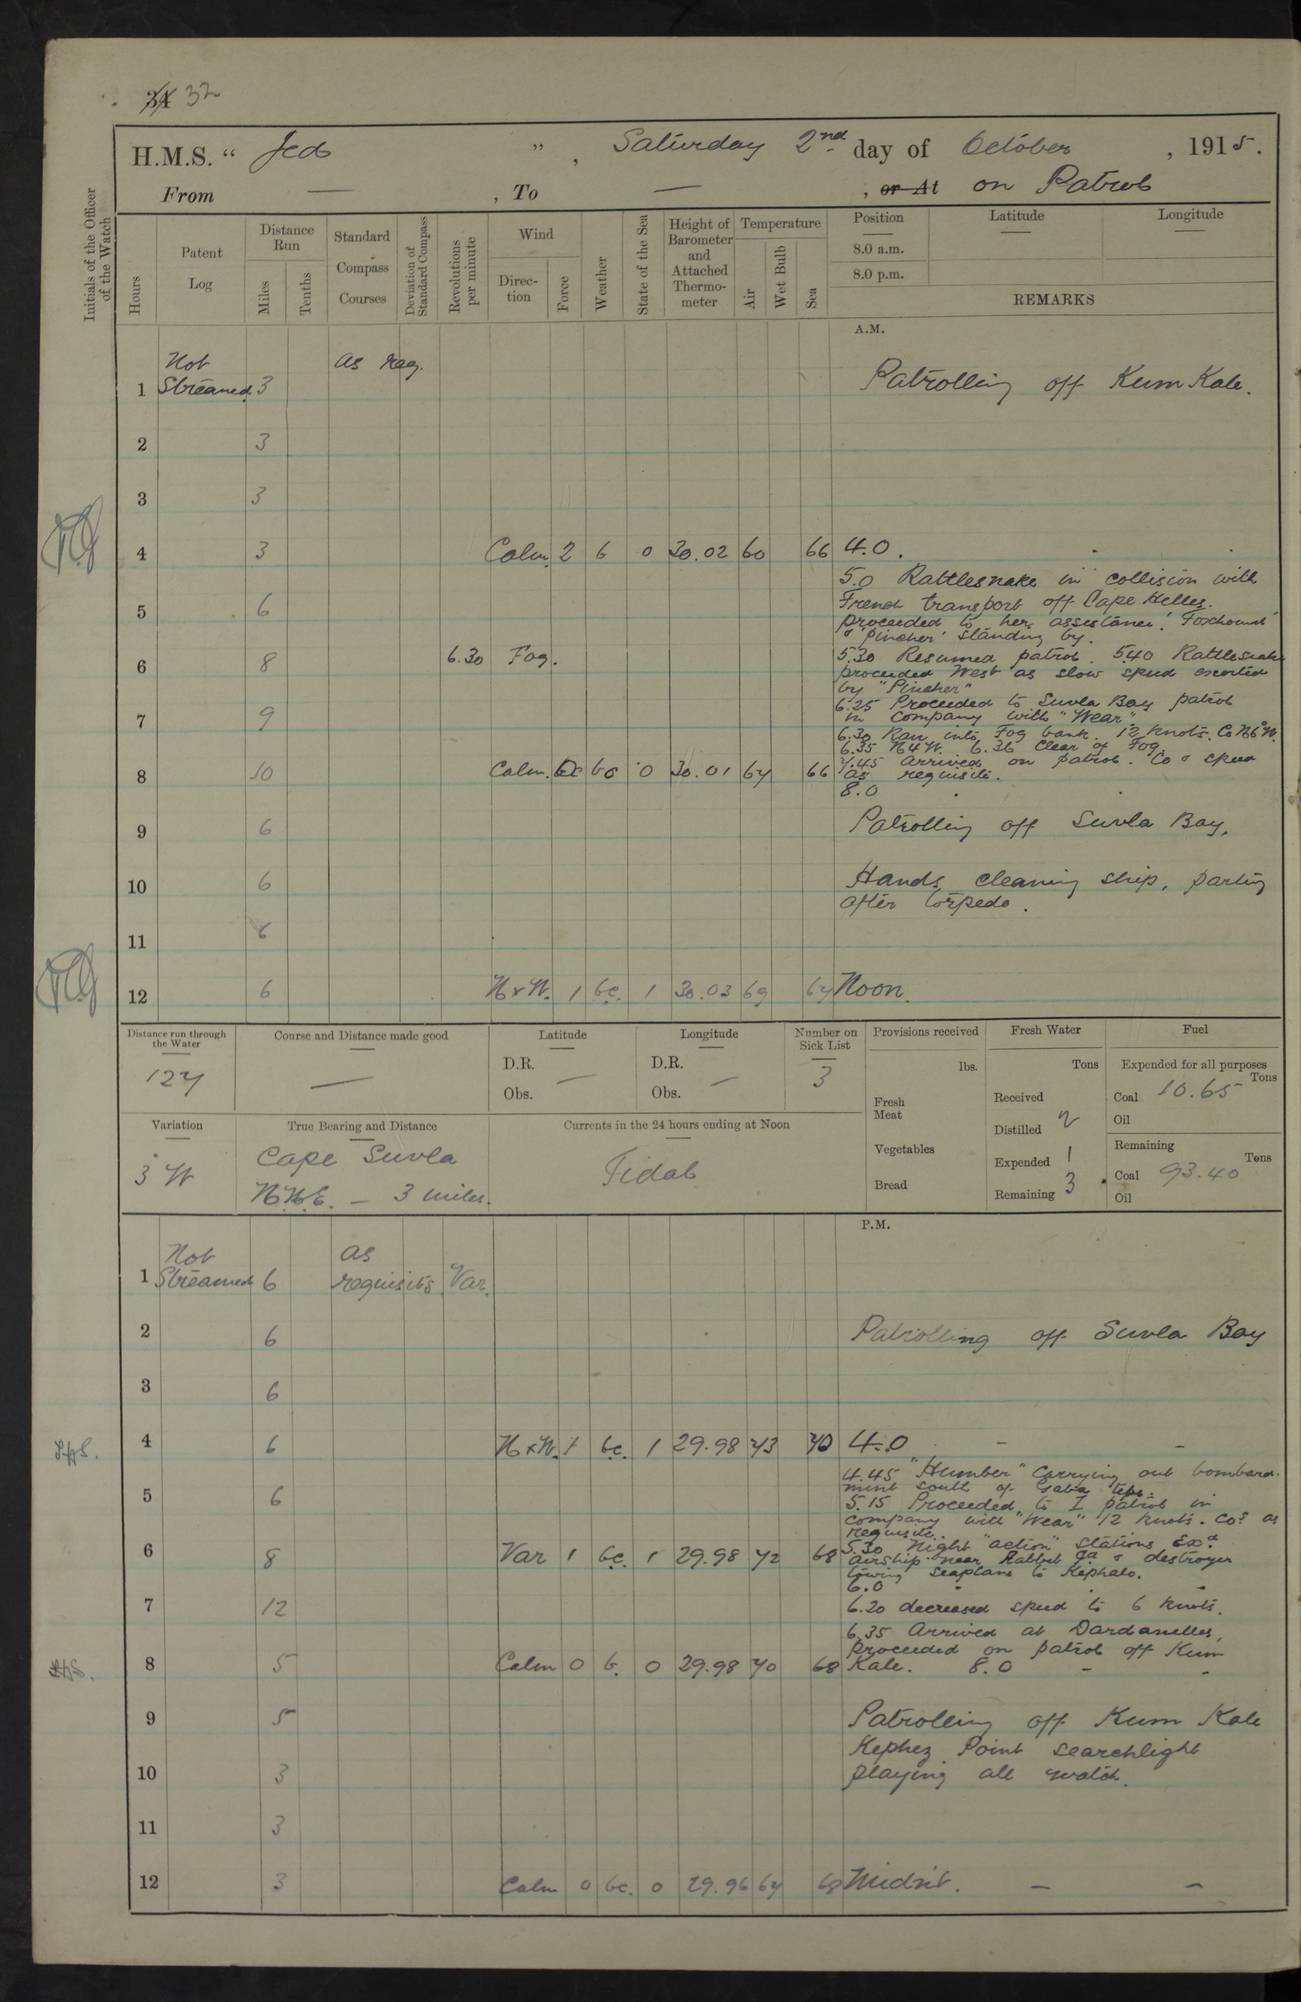 34 32
H.M.S. “ Jed ” , Saturday 2nd day of October , 1915.
From — , To — , or At on Patrol
Initials of the Officer of the Watch
Hours
Patent Log
Distance Run
Miles
Tenths
Standard Compass Courses
Deviation of Standard Compass
Revolutions per minute
Wind
Direction
Force
Weather
State of the Sea
Height of Barometer and Attached Thermometer
Temperature
Air
Wet Bulb
Sea
Position
Latitude
Longitude
8.0 a.m.
8.0 p.m.
REMARKS
A.M.
Not as req.
1 Streamed 3 Patrolling off Kum Kale.
2 3
3 3
4 3 Calm 2 b 0 30.02 60 66 4.0.
5.0 Rattlesnake in collision with
5 6 French transport off Cape Helles.
proceeded to her assistance. 'Foxhound'
& 'Pincher' standing by.
6 8 6.30 Fog. 5.30 Resumed patrol. 5.40 Rattlesnake
proceeded West as slow speed escorted
by "Pincher"
6.25 Proceeded to Suvla Bay patrol
7 9 in company with "Wear"
6.30 Ran into Fog bank. 12 knots. Co N6°W.
6.35 N4W. 6.36 Clear of Fog.
7.45 Arrived on patrol. Co & speed
8 10 Calm. bc 0 30.01 67 66 as requisite.
8.0
9 6 Patrolling off Suvla Bay.
10 6 Hands cleaning ship, parting
after torpedo.
11 6
12 6 NxW. 1 bc. 1 30.03 69 67 Noon.
Distance run through the Water
Course and Distance made good
Latitude
Longitude
Number on Sick List
Provisions received
Fresh Water
Fuel
127 — D.R. — D.R. — 3 lbs. Tons Expended for all purposes
Obs. Obs. Tons
Fresh Meat Received Coal 10.65
Distilled 2 Oil
Variation
True Bearing and Distance
Currents in the 24 hours ending at Noon
Vegetables Expended 1 Remaining
Tons
3° W Cape Suvla Tidal Bread Remaining 3 Coal 93.40
N.N.E. — 3 miles. Oil
P.M.
Not as
1 Streamed 6 requisite Var.
2 6 Patrolling off Suvla Bay
3 6
4 6 NxW. 1 bc. 1 29.98 73 70 4.0 - -
4.45 "Humber" Carrying out bombard-
ment south of Gaba tepe.
5 6 5.15 Proceeded to I patrol in
company with "Wear" 12 knots. Cos as
requisite.
6 8 Var 1 bc. 1 29.98 72 68 5.30 Night "action" stations Exd
airship near Rabbit Id & destroyer
towing seaplane to Kephalo.
6.0 - -
7 12 6.20 decreased speed to 6 knots.
6.35 Arrived at Dardanelles,
proceeded on patrol off Kum
8 5 Calm 0 b. 0 29.98 70 68 Kale. 8.0 - -
9 5 Patrolling off Kum Kale
Kephez Point searchlight
10 3 playing all watch.
11 3
12 3 Calm 0 bc. 0 29.96 67 68 Midnt. — —